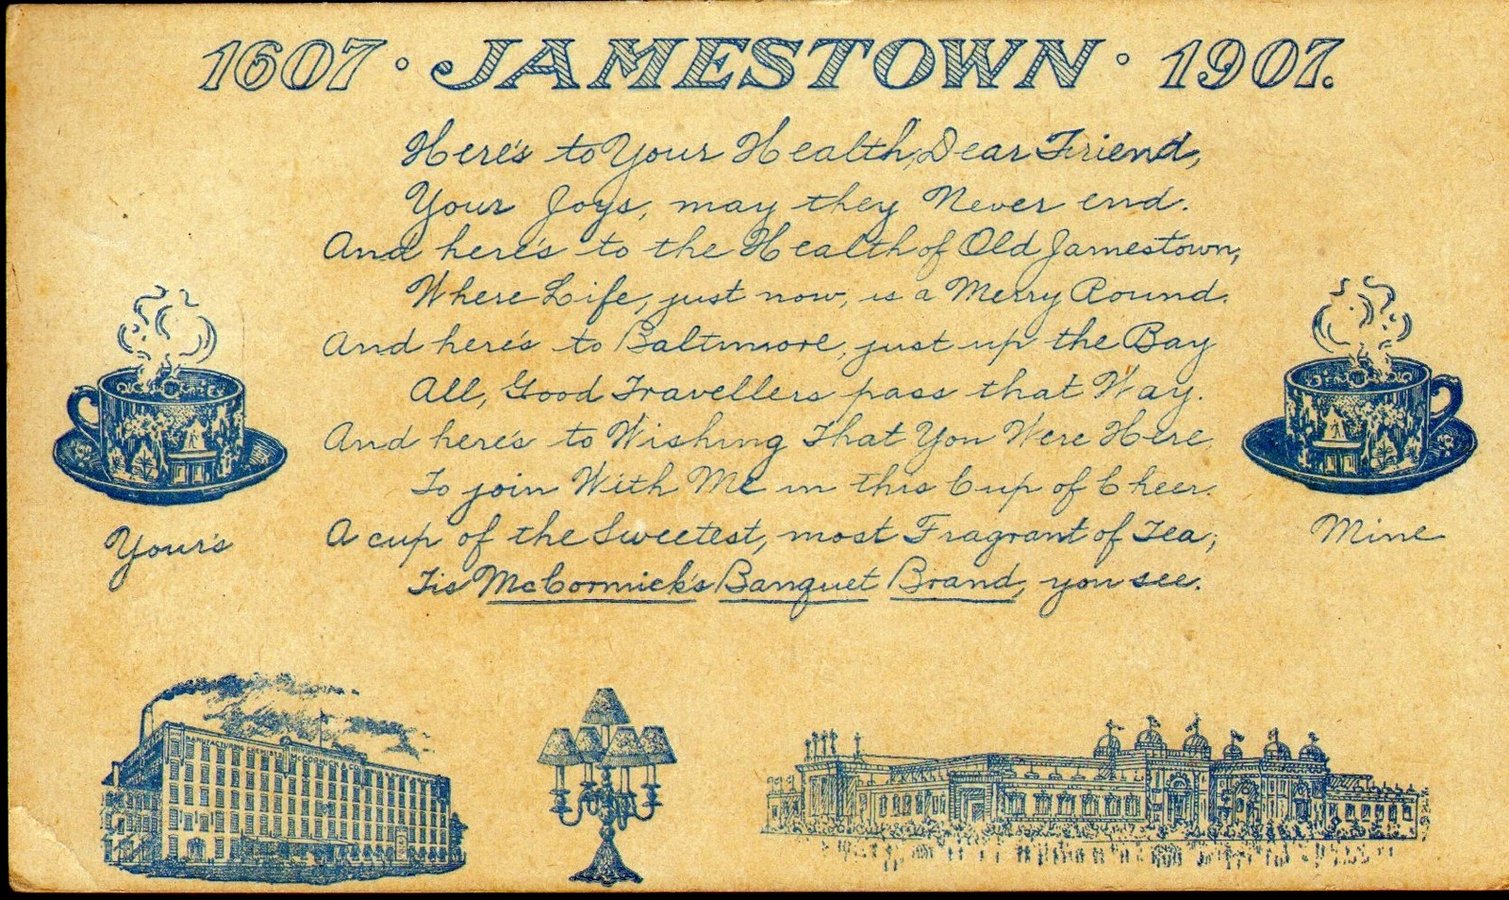 1607 · JAMESTOWN · 1907.
Here's to Your Health, Dear Friend,
Your Joys, may they Never end.
And here's to the Health of Old Jamestown,
Where Life, just now, is a Merry Round.
And here's to Baltimore, just up the Bay
All, Good Travellers pass that Way.
And here's to Wishing That You Were Here
To join With Me in this Cup of Cheer.
A cup of the Sweetest, most Fragrant of Tea,
Tis McCormick's Banquet Brand, you see.
Your's
Mine
MANUFACTURING CHEMISTS
McCORMICK & CO